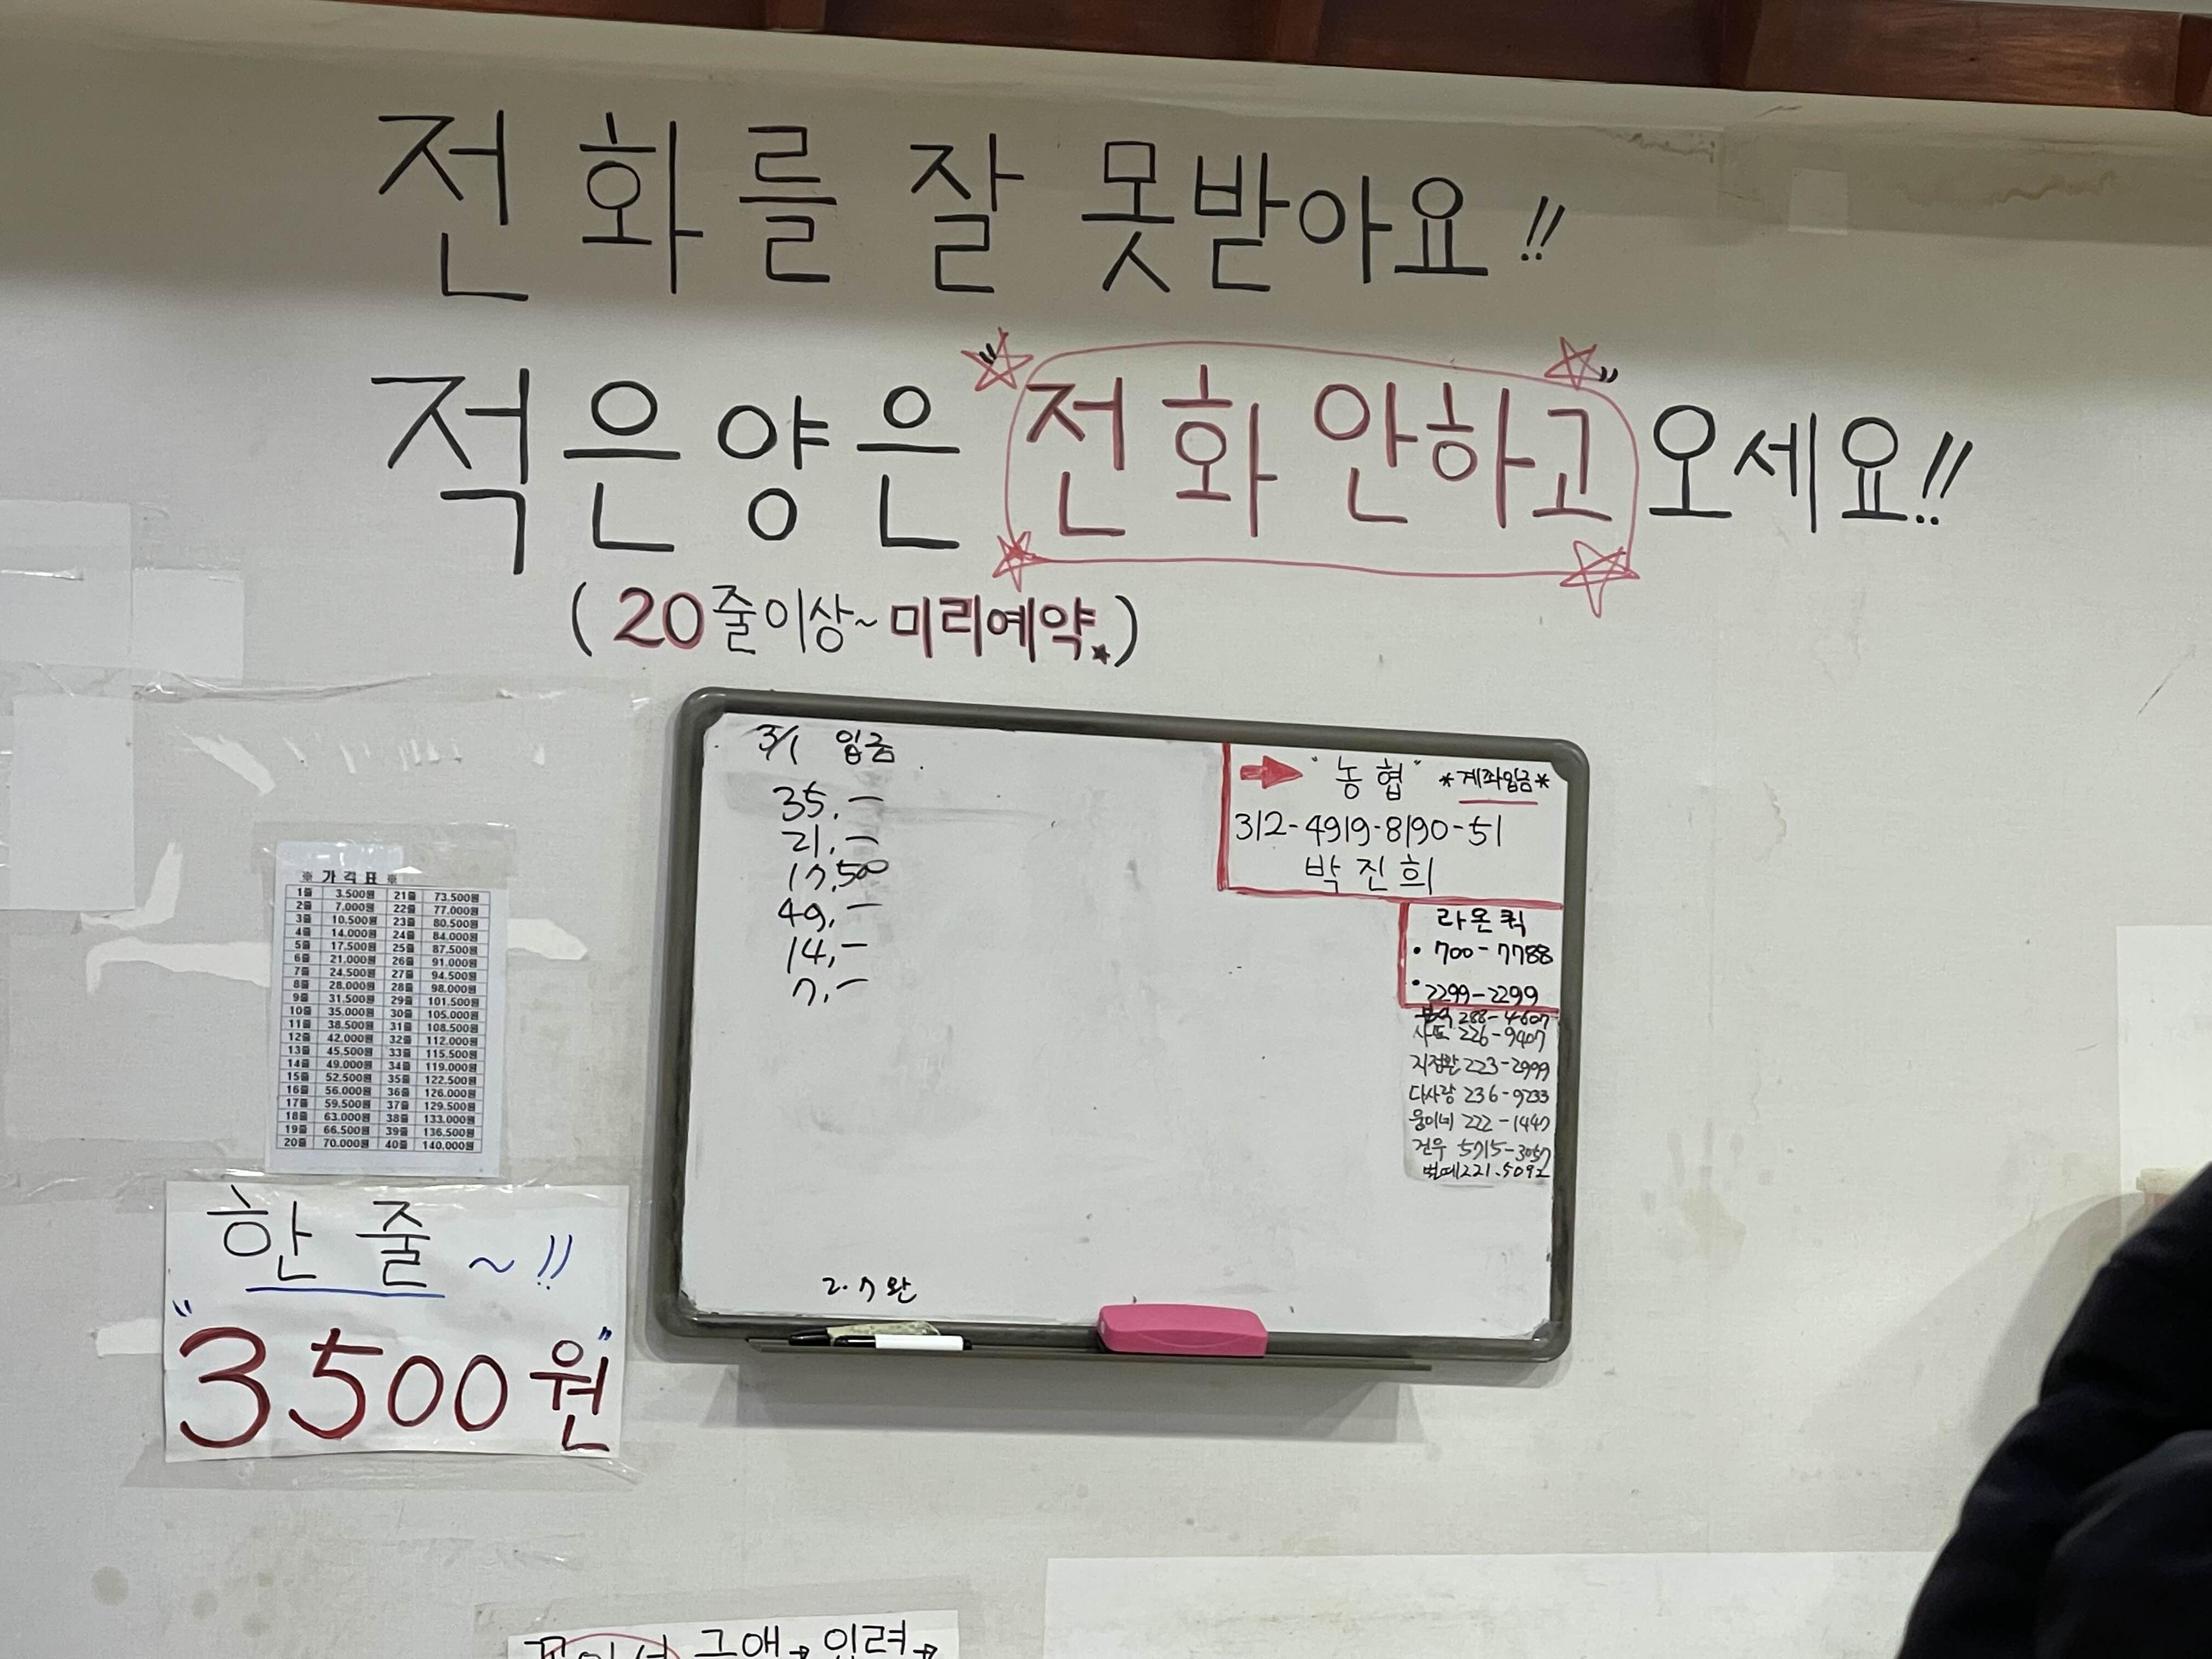 전화를 잘 못받아요!!
적은양은 "전화 안하고" 오세요!!
(20줄이상~미리예약.)
3/1 입금
35.—
21.—
17,500
49.—
14,—
7.—
2.7 완
"농협" *계좌입금*
312-4919-8190-51
박진희
라온퀵
• 700-7788
• 2299-2299
288-4607
226-9407
지점완 223-2999
다사랑 236-9233
웅이네 222-1447
건우 5715-3057
221.5092
※ 가 격 표 ※
1줄 3.500원 21줄 73.500원
2줄 7.000원 22줄 77.000원
3줄 10.500원 23줄 80.500원
4줄 14.000원 24줄 84.000원
5줄 17.500원 25줄 87.500원
6줄 21.000원 26줄 91.000원
7줄 24.500원 27줄 94.500원
8줄 28.000원 28줄 98.000원
9줄 31.500원 29줄 101.500원
10줄 35.000원 30줄 105.000원
11줄 38.500원 31줄 108.500원
12줄 42.000원 32줄 112.000원
13줄 45.500원 33줄 115.500원
14줄 49.000원 34줄 119.000원
15줄 52.500원 35줄 122.500원
16줄 56.000원 36줄 126.000원
17줄 59.500원 37줄 129.500원
18줄 63.000원 38줄 133.000원
19줄 66.500원 39줄 136.500원
20줄 70.000원 40줄 140.000원
한 줄 ~!!
"3500원"